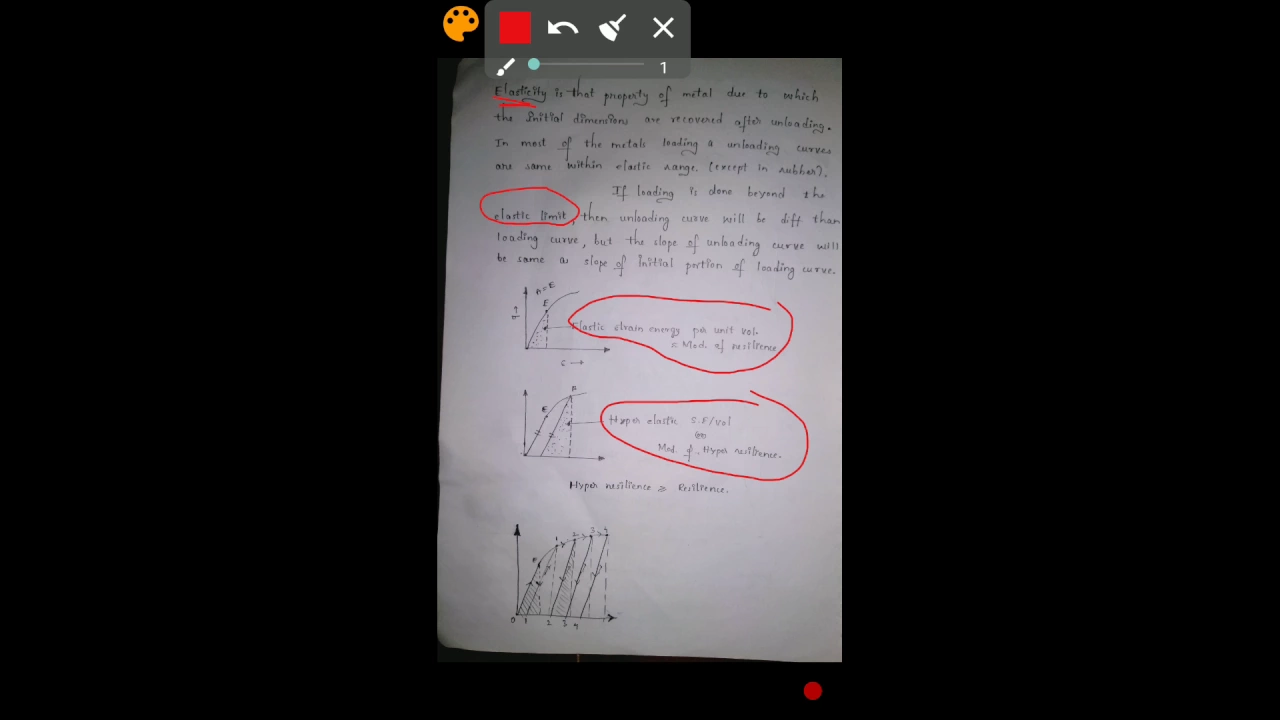 1
Elasticity is that property of metal due to which
the initial dimensions are recovered after unloading.
In most of the metals loading & unloading curves
are same within elastic range. (except in rubber).
If loading is done beyond the
elastic limit, then unloading curve will be diff than
loading curve, but the slope of unloading curve will
be same as slope of initial portion of loading curve.
E
σ
Elastic strain energy per unit vol.
= Mod. of resilience
E
Hyper elastic S.E/vol
Mod. of Hyper resilience.
Hyper resilience ≥ Resilience.
1 2 3 4
0 1 2 3 4